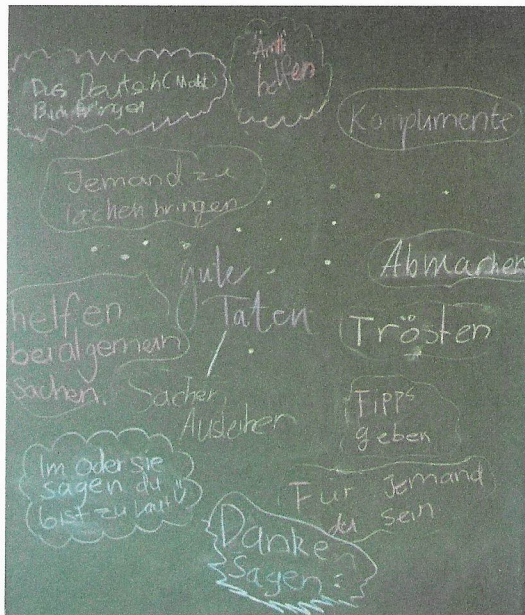 Das Deutsch (Mat)
Buch bringen
Ämtli
helfen
Komplimente
Jemand zu
lachen bringen
gute
Taten
Abmachen
helfen
bei algemein
Sachen.
Trösten
Sachen
Ausleihen
Tipps
geben
Im oder sie
sagen du
bist zu laut
Für Jemand
da sein
Danke
sagen